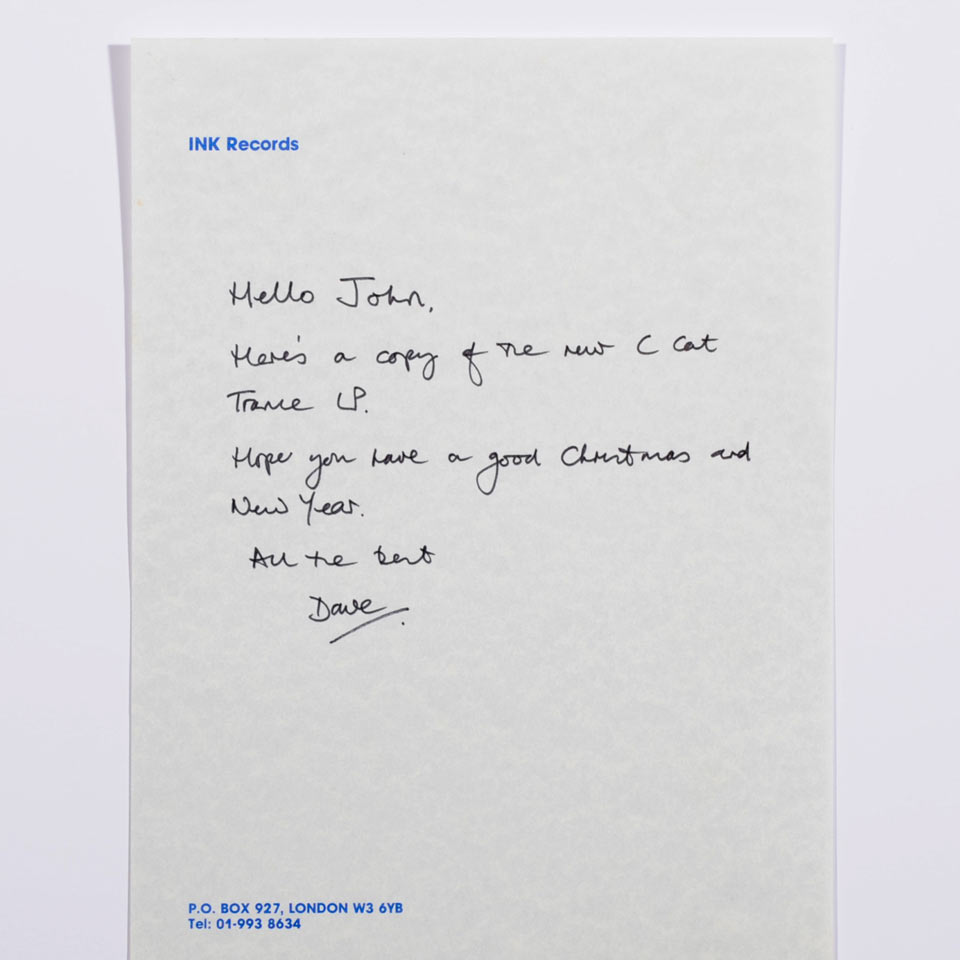 INK Records
Hello John,
Here's a copy of the new C Cat
Trance LP.
Hope you have a good Christmas and
New Year.
All the best
Dave.
P.O. BOX 927, LONDON W3 6YB
Tel: 01-993 8634